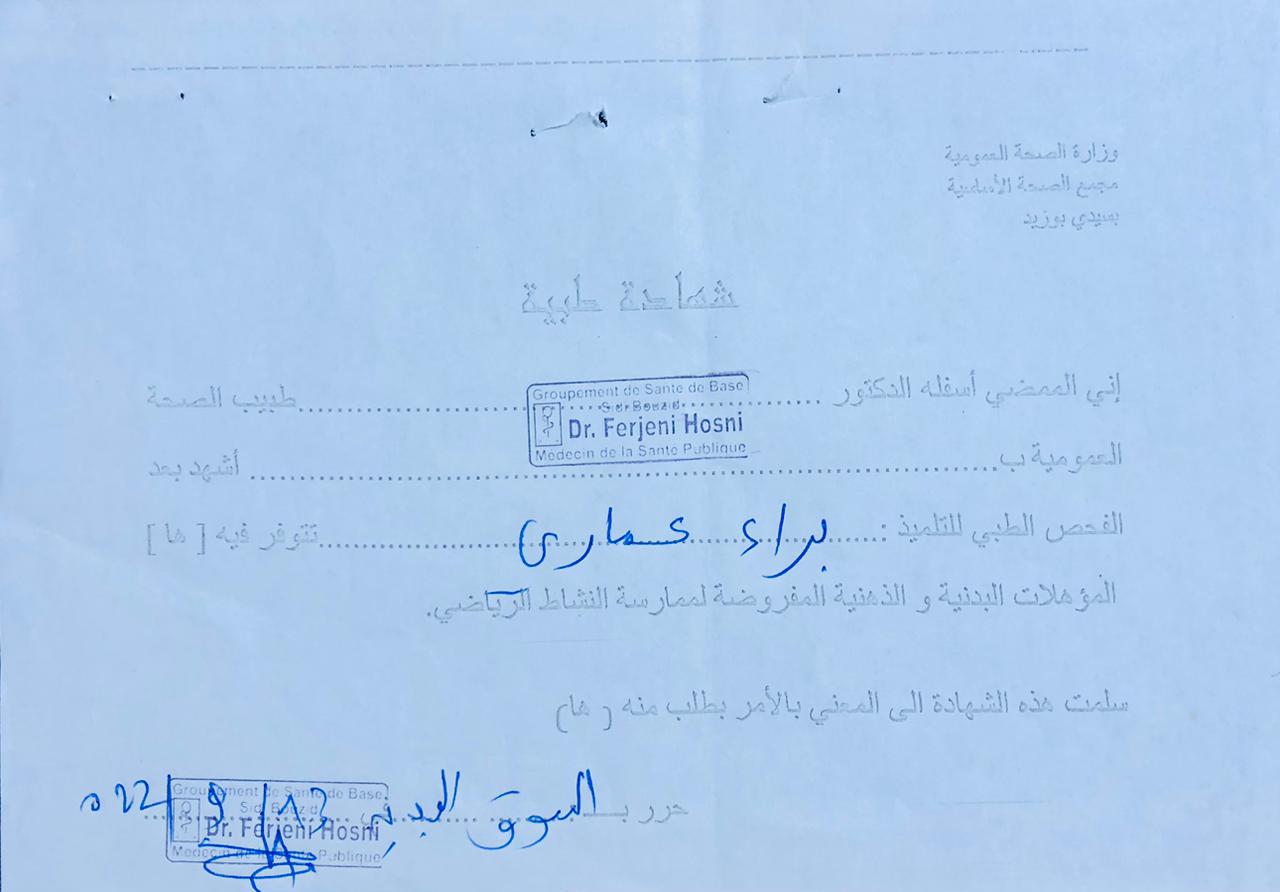 وزارة الصحة العمومية
مجمع الصحة الأساسية
بسيدي بوزيد
شهادة طبية
إني الممضي أسفله الدكتور .......... طبيب الصحة
Groupement de Sante de Base
Sidi Bouzid
Dr. Ferjeni Hosni
Médecin de la Santé Publique
العمومية ب .......... أشهد بعد
الفحص الطبي للتلميذ : براء عماري تتوفر فيه [ ها ]
المؤهلات البدنية و الذهنية المفروضة لممارسة النشاط الرياضي.
سلمت هذه الشهادة الى المعني بالأمر بطلب منه ( ها)
حرر بـ السوق الجديد في 13/9/022
Groupement de Sante de Base
Sidi Bouzid
Dr. Ferjeni Hosni
Médecin de la Santé Publique